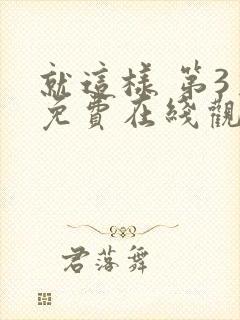 就這樣 第3
免費在綫觀
君落舞